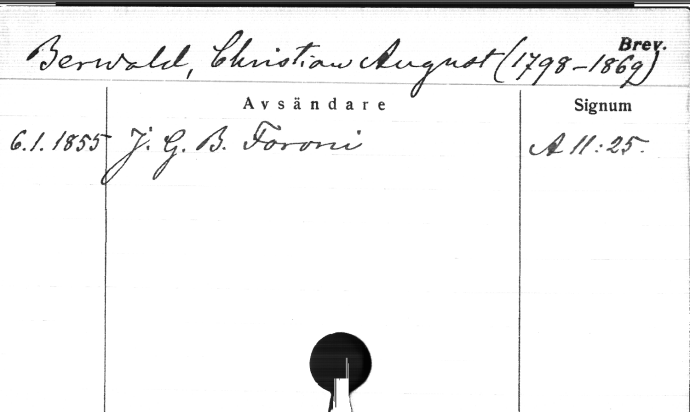 Brev.
Berwald, Christian August (1798-1869)
Avsändare Signum
6.1.1855 J. G. B. Foroni A 11:25.